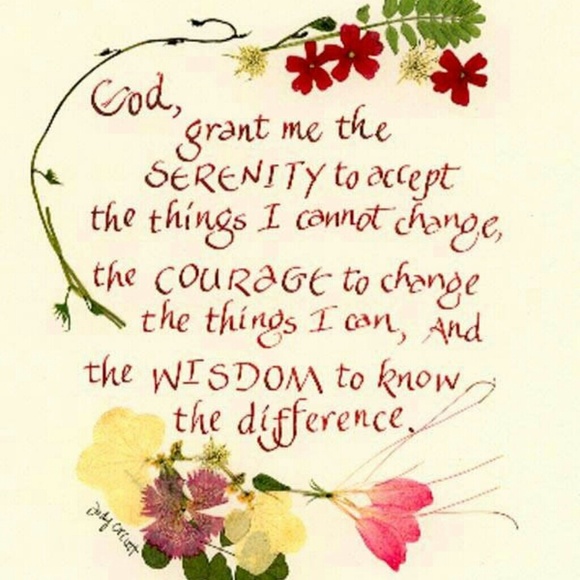 God,
grant me the
SERENITY to accept
the things I cannot change,
the COURAGE to change
the things I can, And
the WISDOM to know
the difference.